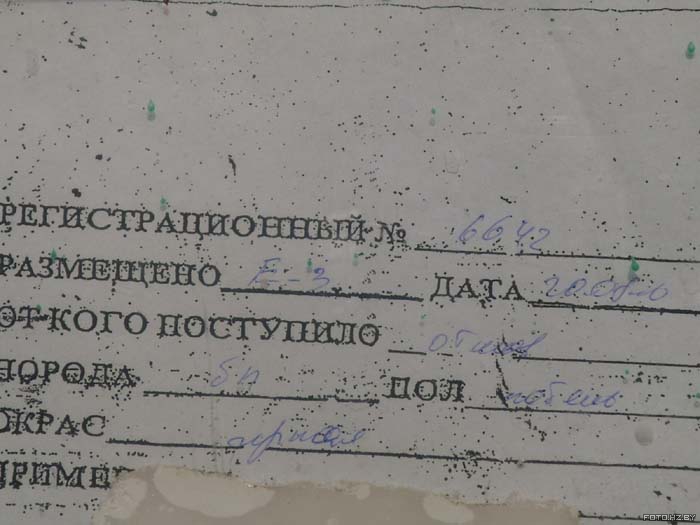 РЕГИСТРАЦИОННЫЙ № 6642
РАЗМЕЩЕНО Е-3 ДАТА
ОТ КОГО ПОСТУПИЛО отлов
ПОРОДА бп ПОЛ кобель
ОКРАС
ПРИМЕ
FOTO.HZ.BY